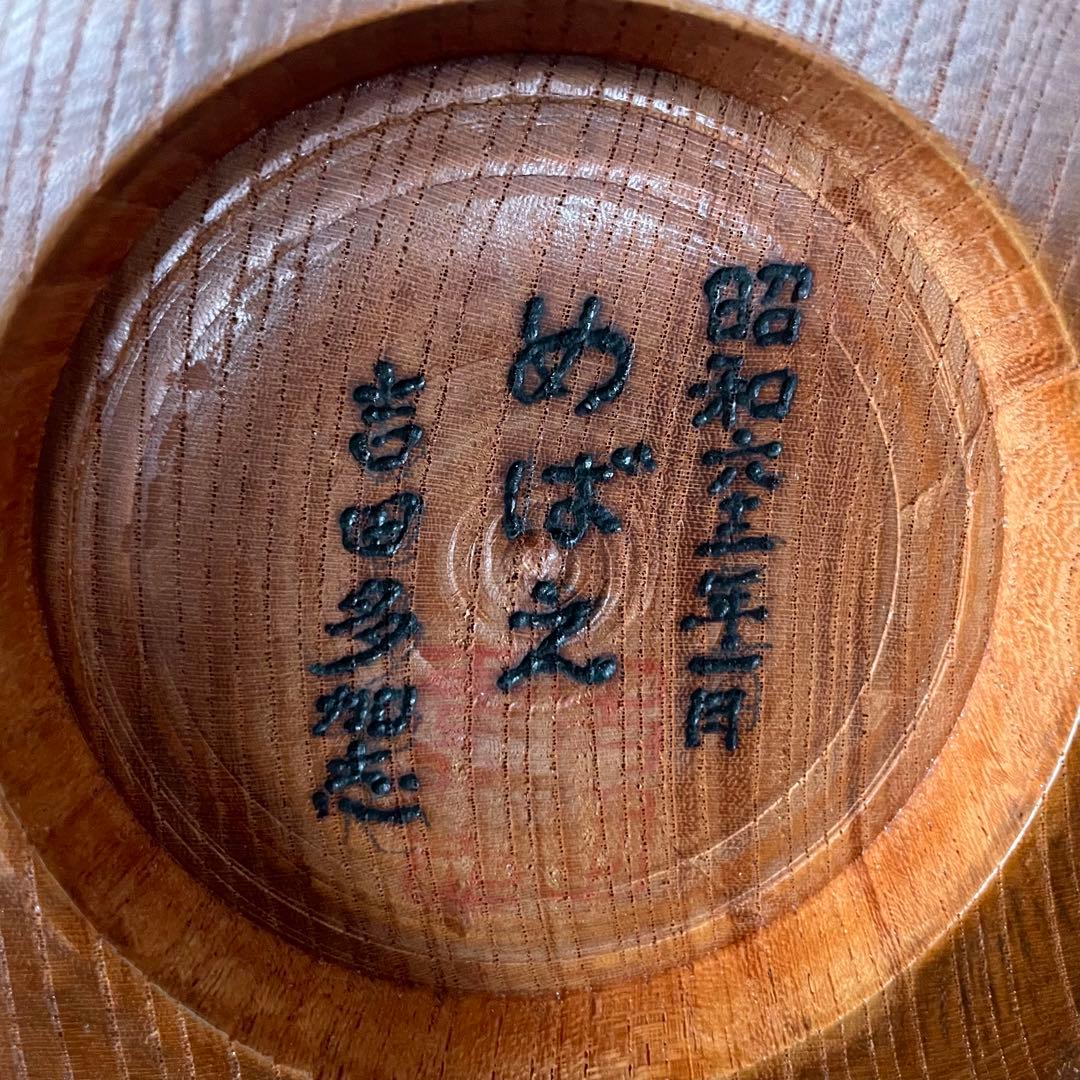 昭和六十二年十一月
めばえ
吉田多加志